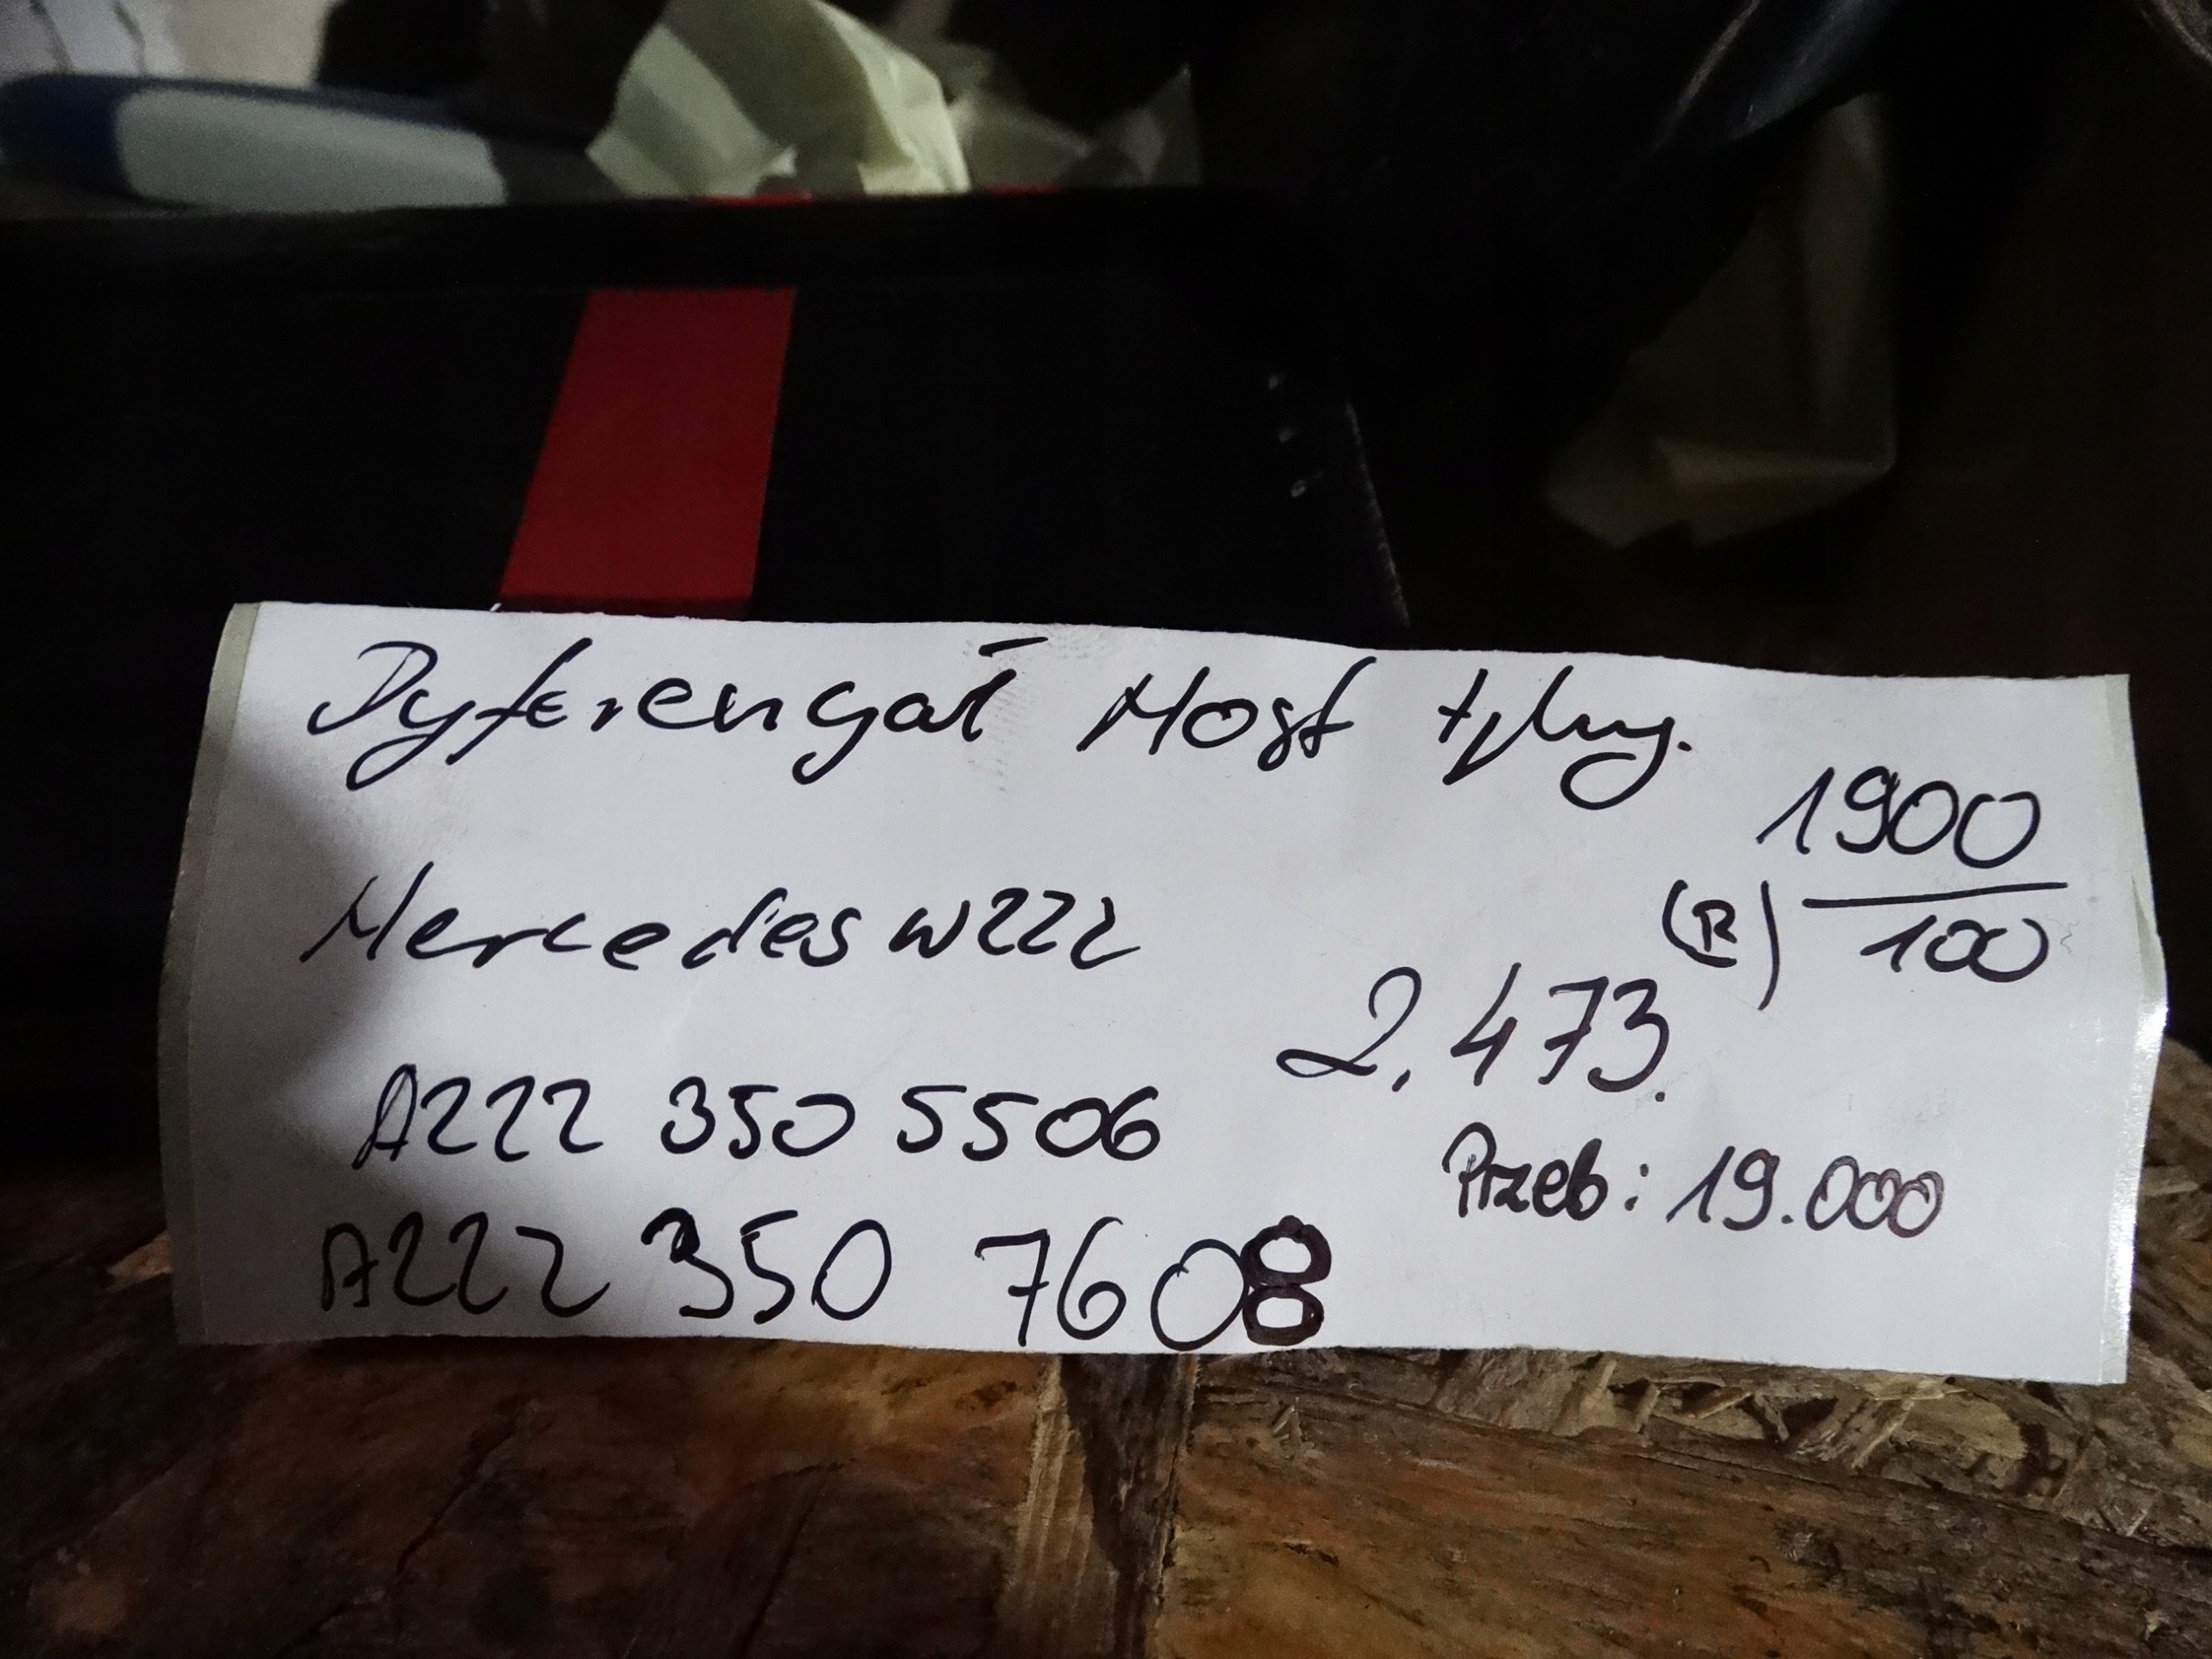 Dyferencjał Most tylny.
1900
Mercedes W222
(R) 100
2,473.
A222 350 5506
Przeb: 19.000
A222 350 7608